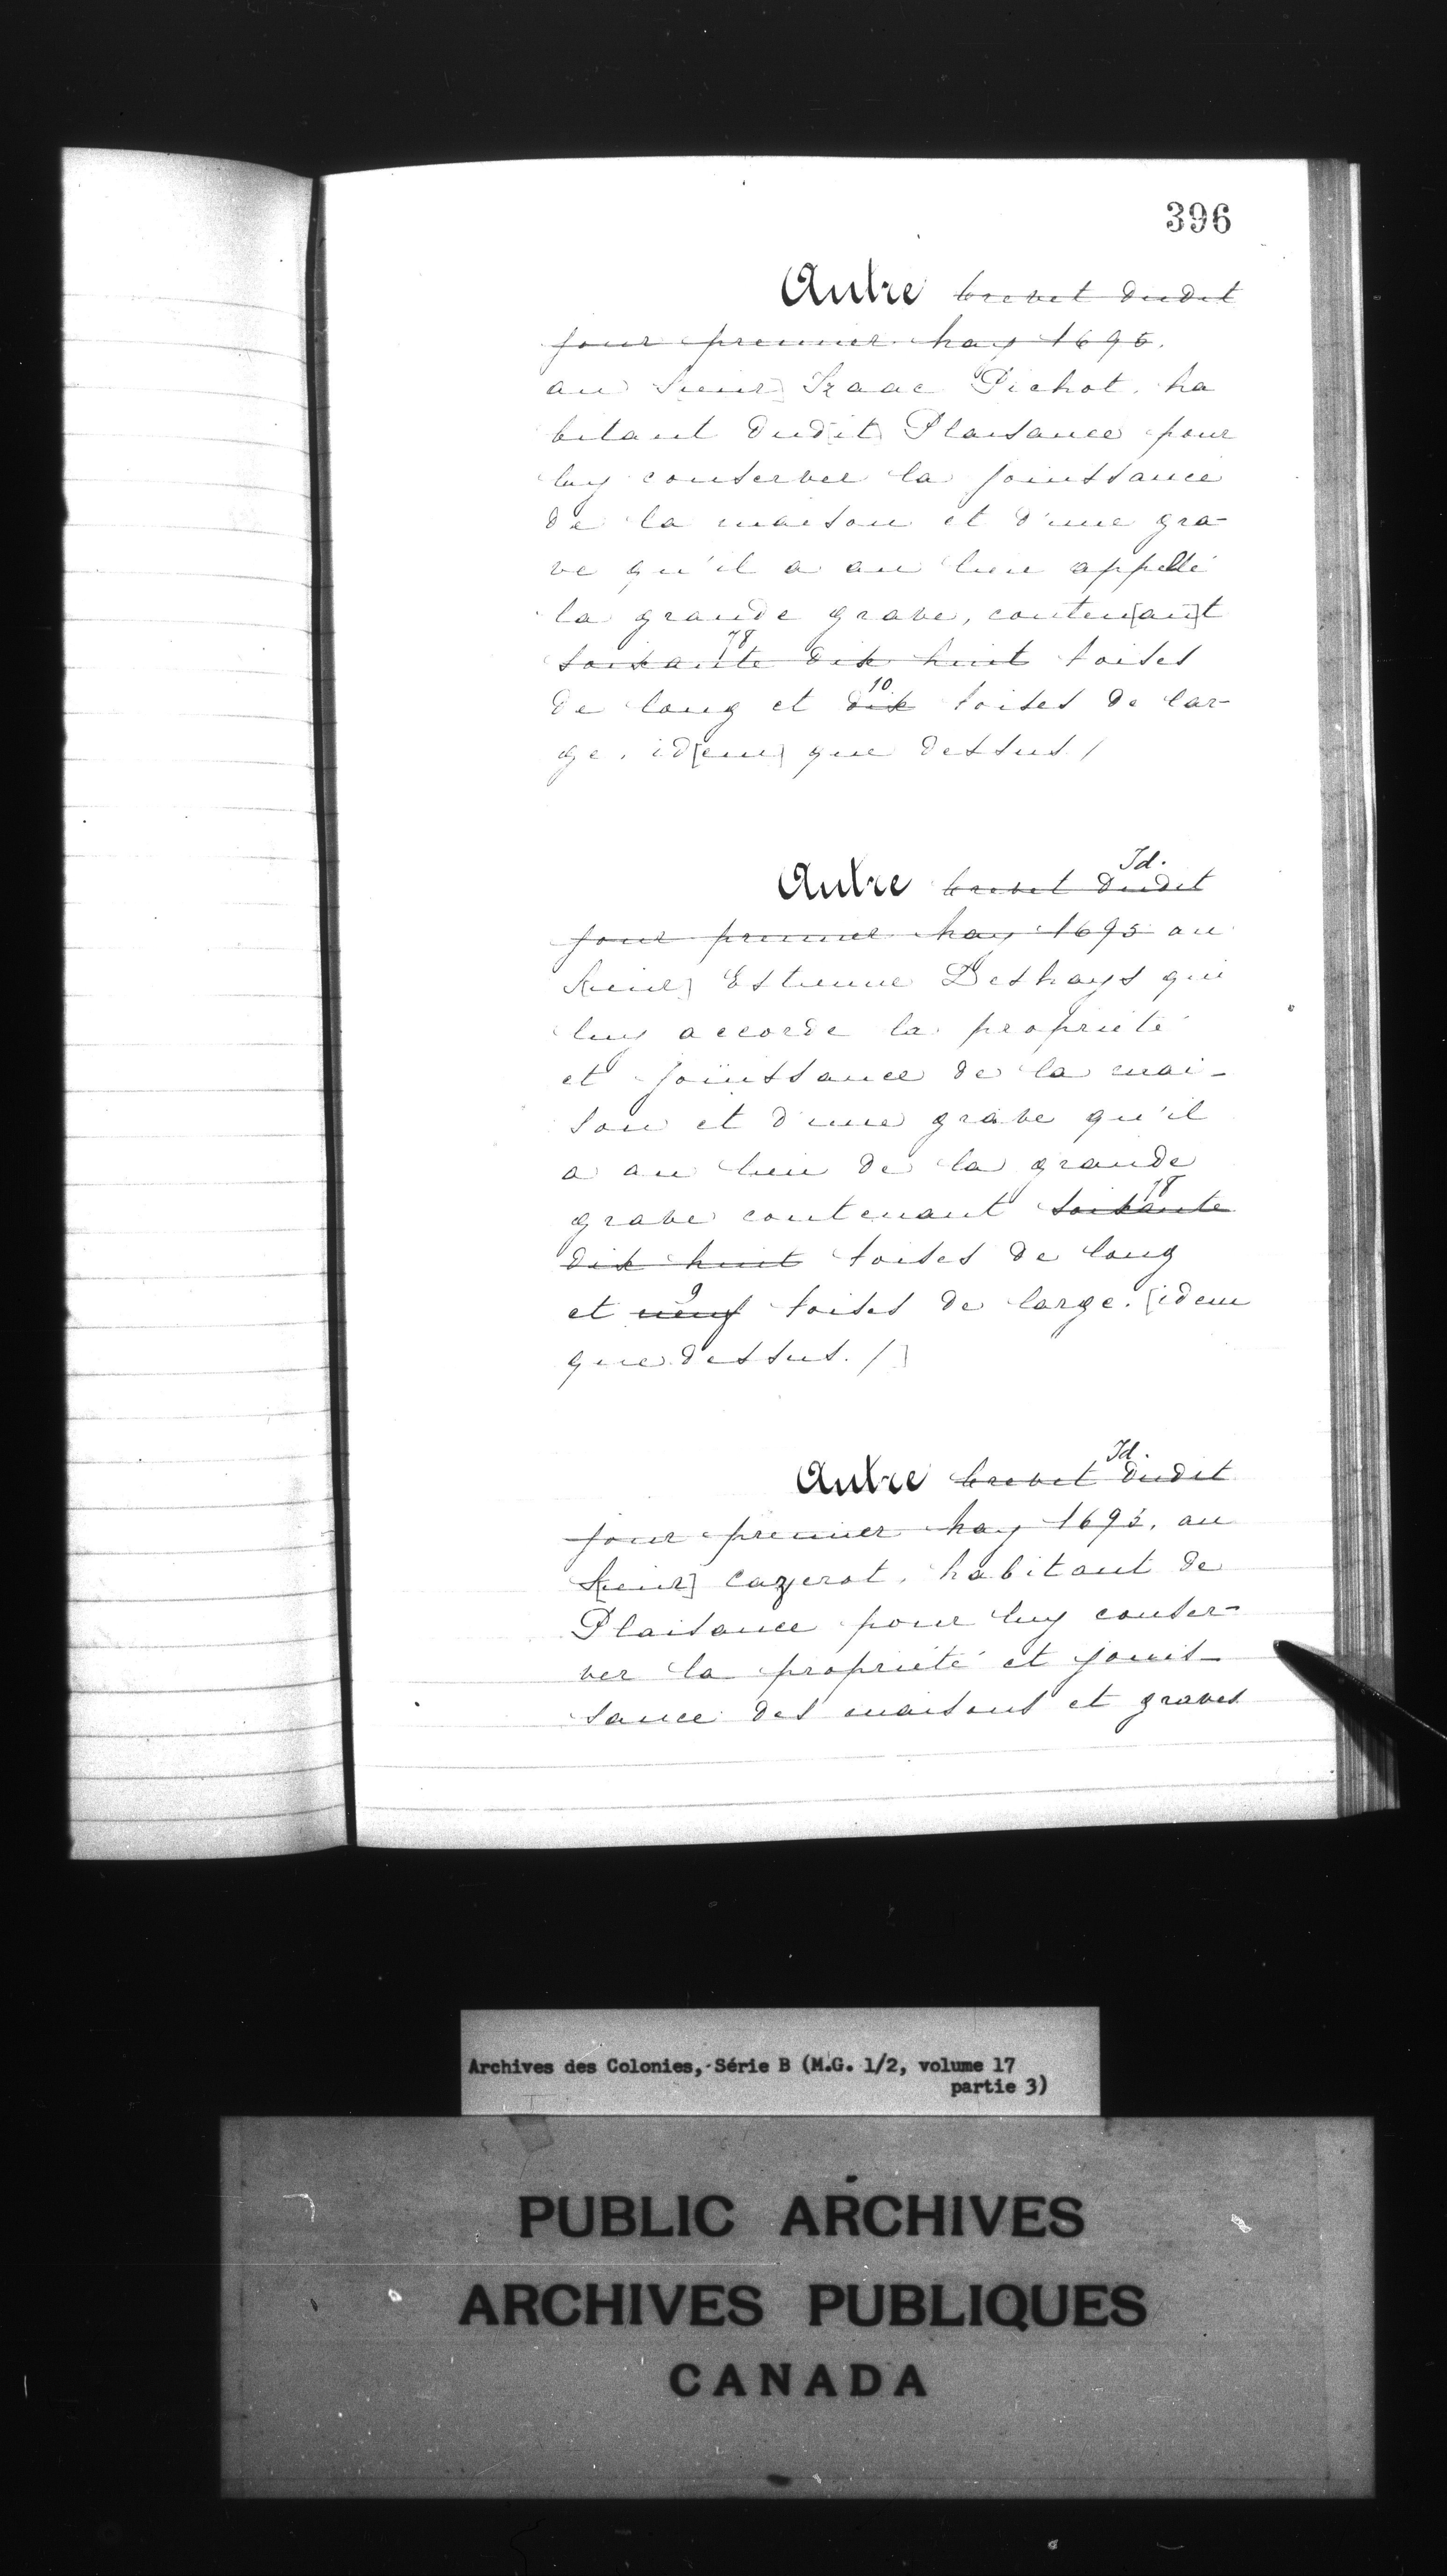 396
Autre brevet dudit
jour premier may 1695.
au Sieur] Izaac Pichot, ha
bitant dud[it] Plaisance pour
luy conserver la jouissance
de la maison et d'une gra-
ve qu'il a au lieu appellé
la grande grave, conten[an]t
78
soixante dix huit toises
10
de long et dix toises de lar-
ge. id[em] que dessus /
Id.
Autre brevet dudit
jour premier may 1695 au
S[ieur] Estienne Deshays qui
luy accorde la propriété
et jouissance de la mai-
son et d'une grave qu'il
a au lieu de la grande
78
grave contenant soixante
dix huit toises de long
9
et neuf toises de large. [idem
que dessus. /]
Id.
Autre brevet dudit
jour premier may 1695, au
S[ieur] Cazerot, habitant de
Plaisance pour luy conser-
ver la propriété et jouis-
sance des maisons et graves
Archives des Colonies, Série B (M.G. 1/2, volume 17
partie 3)
PUBLIC ARCHIVES
ARCHIVES PUBLIQUES
CANADA